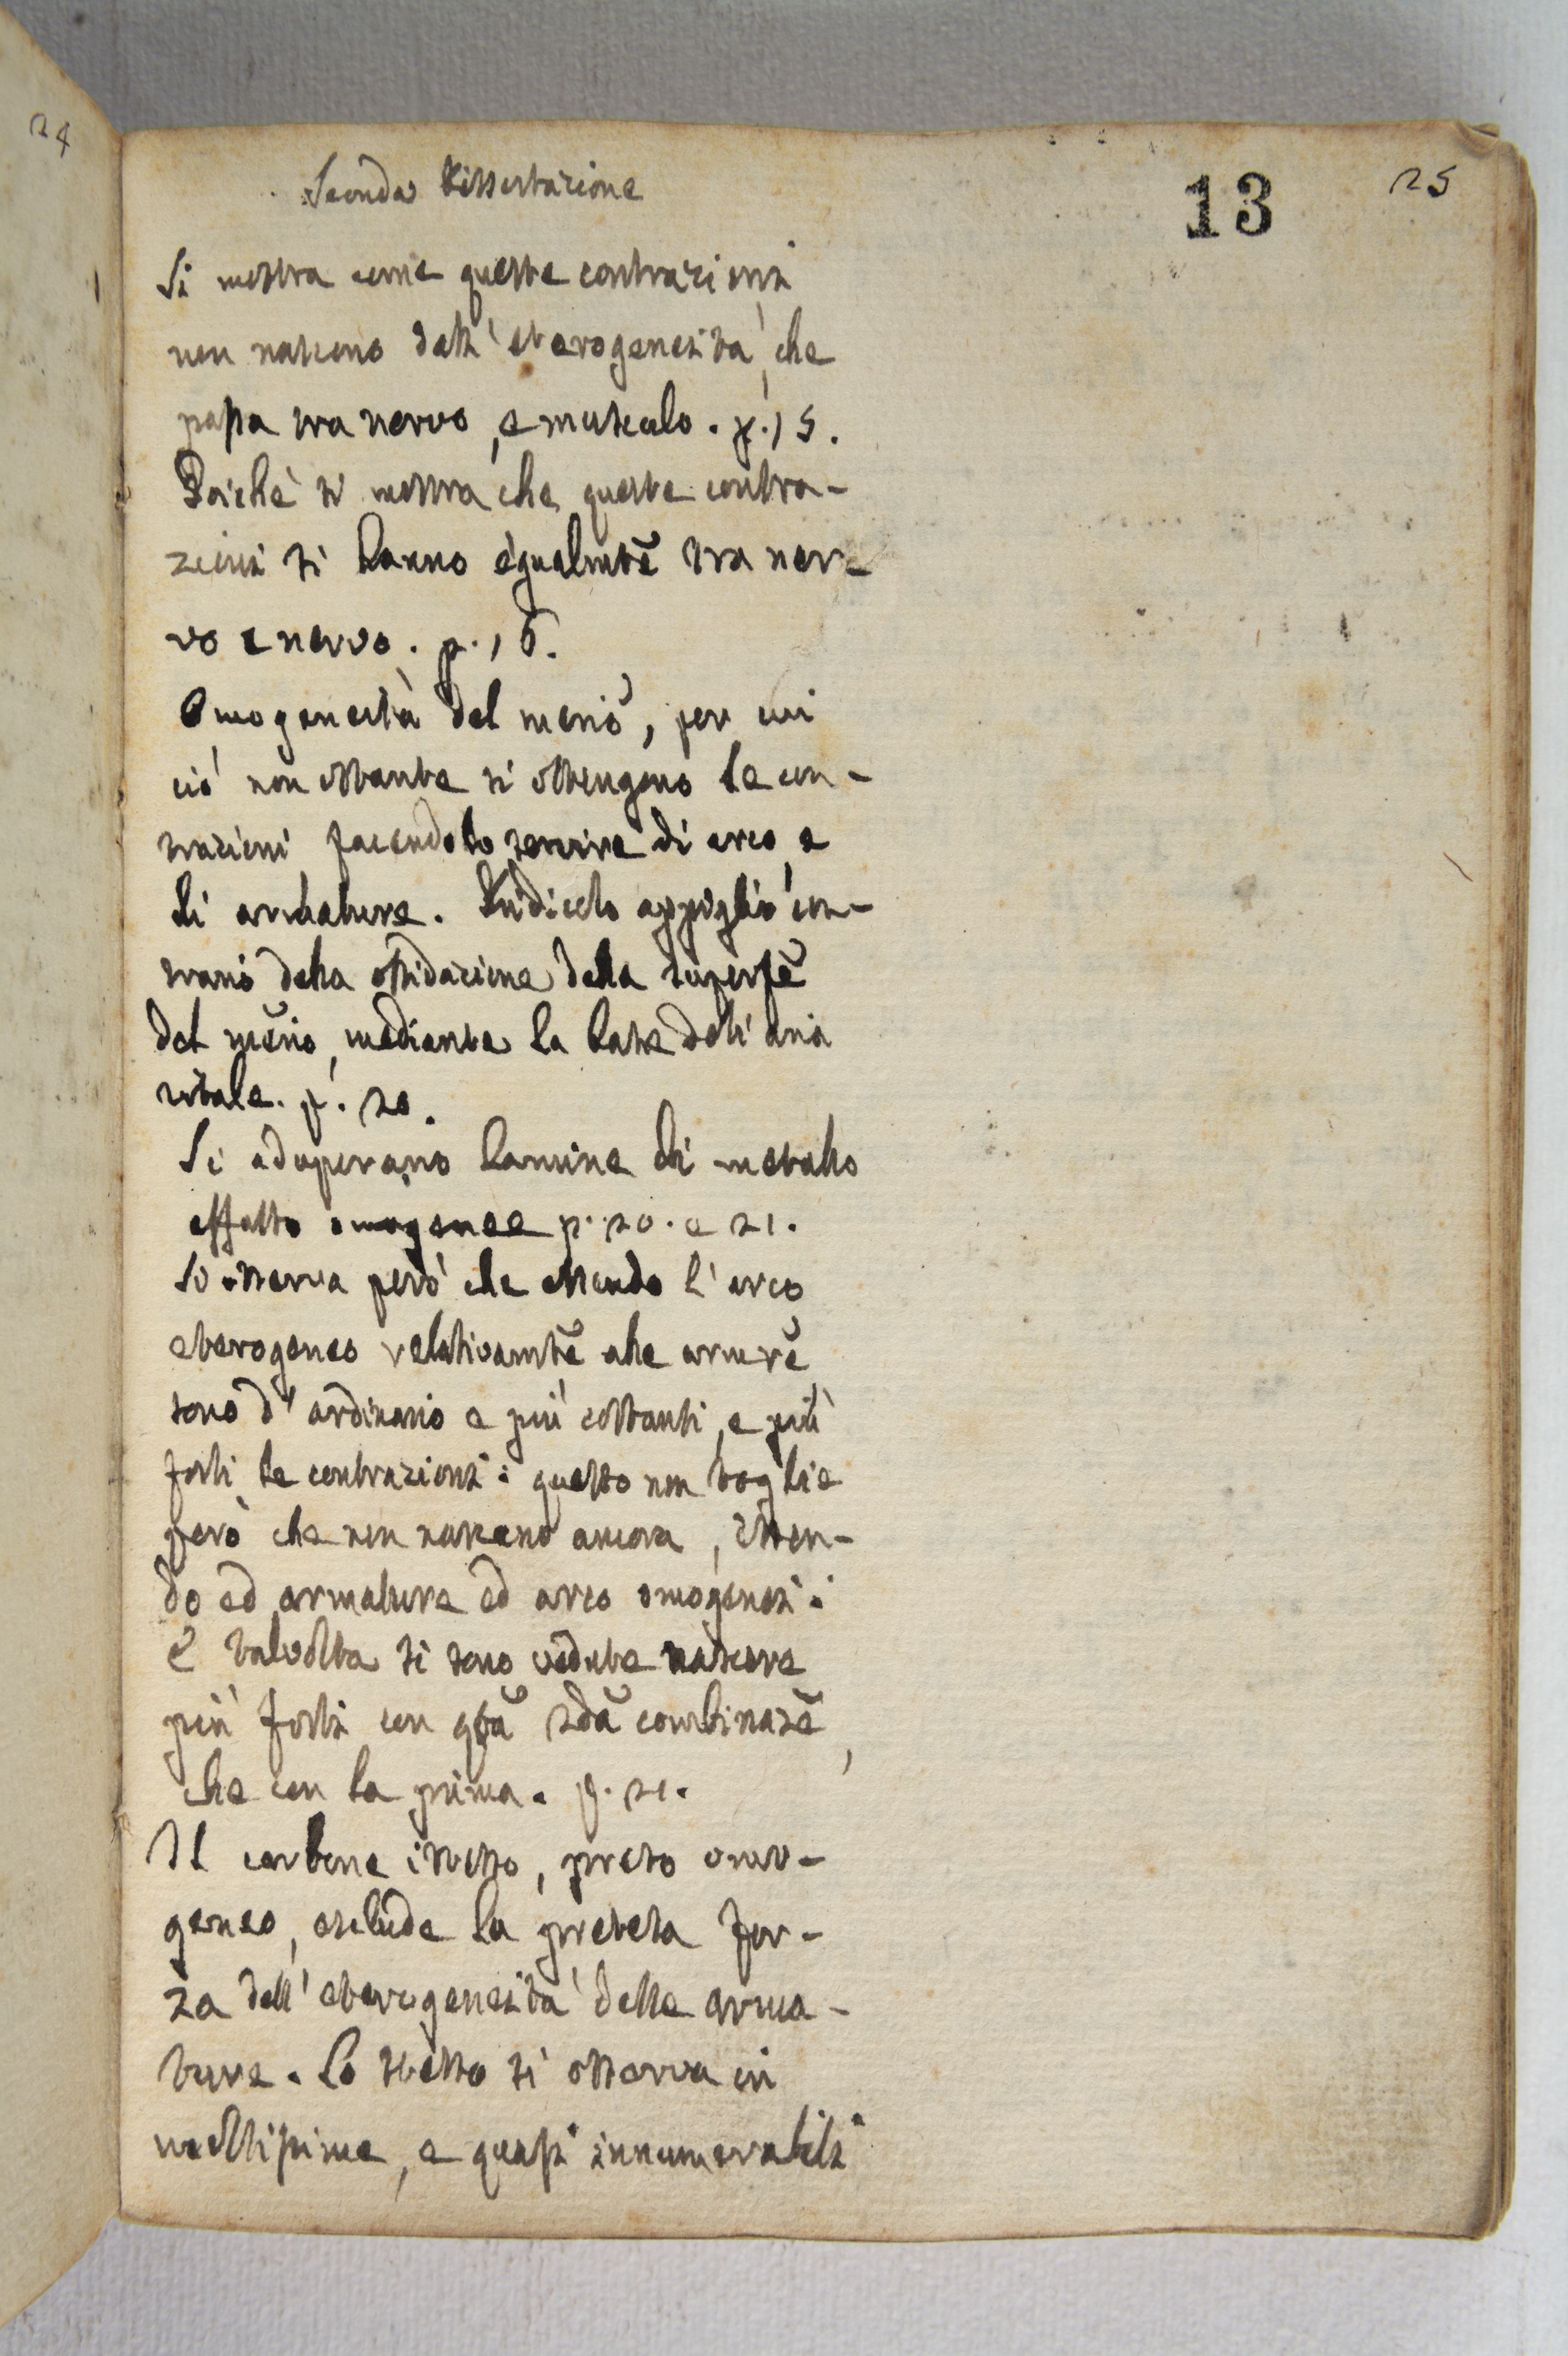 24
13
25
Seconda Dissertazione
Si mostra come queste contrazioni
non nascono dall'eterogeneità, che
passa tra nervo, e muscolo. p. 15.
Poichè si mostra che queste contra-
zioni si hanno egualmte tra ner-
vo e nervo. p. 16.
Omogeneità del merio, per cui
ciò non ostante si ottengono le con-
trazioni facendolo servire di arco, e
di armature. Ridicolo appiglio con-
trario della ossidazione della superfe
del merio, mediante la base dell'aria
vitale. p. 20.
Si adoperano lamine di metallo
affatto omogenee p. 20. e 21.
Si osserva però che essendo l'arco
eterogeneo relativamte alle armure,
sono d'ordinario e più costanti, e più
forti le contrazioni: questo non toglie
però che non nascano ancora, essen-
do ed armature ed arco omogenei:
e talvolta si sono vedute nascere
più forti con qta 2da combinaze,
che con la prima. p. 21.
Il carbone istesso, preso omo-
geneo, esclude la pretesa for-
za dell'eterogeneità delle arma-
ture. Lo stesso si osserva in
moltissime, e quasi innumerabili